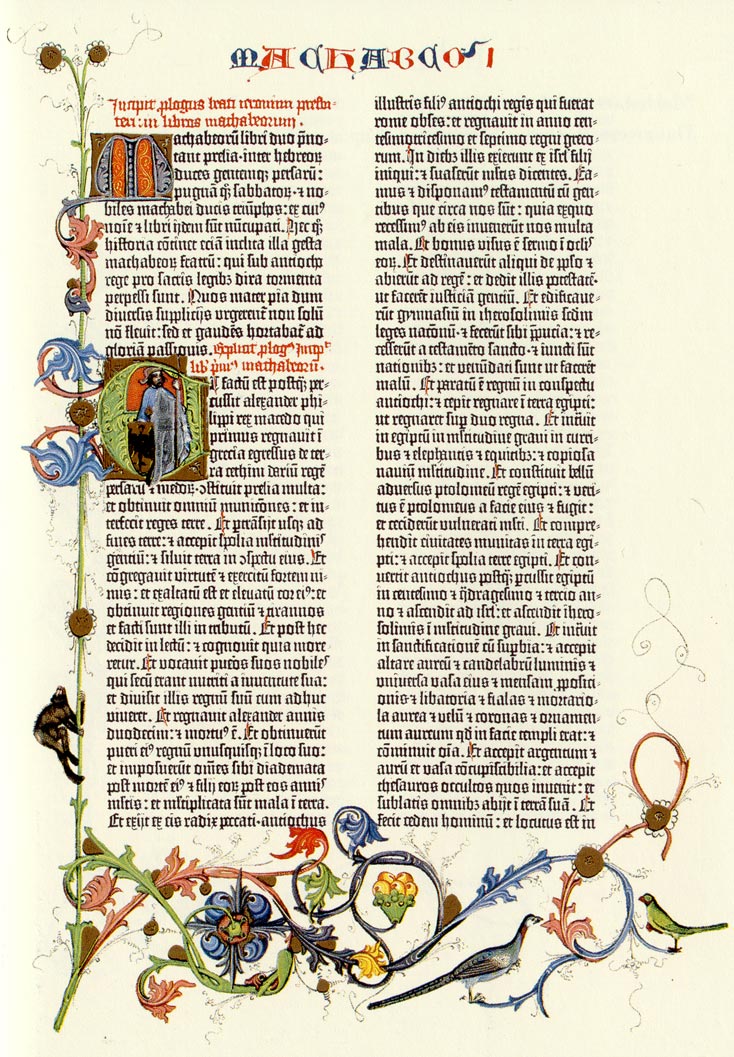 MACHABEOꝝ I
Incipit ꝓlogus beati ieronimi presbi-
teri: in libros machabeorum.
Machabeoꝝ libri duo p̄no-
tant prelia. inter hebreoꝝ
duces gentemqꝫ persaꝝ:
pugnam qꝫ sabbatoꝝ. ⁊ no-
biles machabei ducis triūphos: ex cuiꝰ
noīe ⁊ libri ijdem sūt nūcupati. Hec qꝫ
historia cōtinet eciā inclita illa gesta
machabeoꝝ fratrū: qui sub antiocho
rege pro sacris legibꝫ dira tormenta
perpessi sunt. Quos mater pia dum
diuersis supplicijs urgerent non solū
nō fleuit: sed et gaudēs hortabat ad
gloriā passionis. Explicit ꝓlogꝰ Incipit
lib̄ primꝰ machabeorū.
Et factū est postqꝫ per-
cussit alexander phi-
lippi rex macedo qui
primus regnauit ī
grecia egressus de ter-
ra cethim dariū regē
persaꝝ ⁊ medoꝝ. ꝯstituit prelia multa:
et obtinuit omniū munitiones: et in-
terfecit reges terre. Et pertrāsijt usqꝫ ad
fines terre: ⁊ accepit spolia mltitudinis
gentiū: ⁊ siluit terra in ꝯspectu eius. Et
cōgregauit virtutē ⁊ exercitū fortem ni-
mis: et exaltatū est et eleuatū cor eiꝰ: et
obtinuit regiones gentiū ⁊ tyrannos
et facti sunt illi in tributū. Et post hec
decidit in lectū: ⁊ cognouit quia more-
retur. Et vocauit pueros suos nobiles
qui secū erant nutriti a iuuentute sua:
et diuisit illis regnū suū cum adhuc
viueret. Et regnauit alexander annis
duodecim: ⁊ mortuꝰ ē. Et obtinuerūt
pueri eiꝰ regnū vnusquisqꝫ ī loco suo:
et imposuerūt om̄es sibi diademata
post mortē eiꝰ ⁊ filij eoꝝ post eos annis
mltis: et mltiplicata sūt mala ī terra.
Et exijt ex eis radix peccati. antiochus
illustris filiꝰ antiochi regis qui fuerat
rome obses: et regnauit in anno cen-
tesimotricesimo et septimo regni greco-
rum. In diebꝫ illis exierunt ex isrl̄ filij
iniqui: ⁊ suaserūt mltis dicentes. Ea-
mus ⁊ disponamꝰ testamentū cū gen-
tibus que circa nos sūt: quia exquo
recessimꝰ ab eis inuenerūt nos multa
mala. Et bonus visus ē sermo ī oclis
eoꝝ. Et destinauerūt aliqui de pplo ⁊
abierūt ad regē: et dedit illis potestatē.
ut facerēt iusticiā gentiū. Et edificaue-
rūt gymnasiū in iherosolimis scdm
leges nationū. ⁊ fecerūt sibi p̄pucia: ⁊ re-
cesserūt a testamēto sancto. ⁊ iuncti sūt
nationibꝫ: et venūdati sunt ut facerēt
malū. Et paratū ē regnū in conspectu
antiochi: ⁊ cepit regnare ī terra egipti:
ut regnaret sup duo regna. Et intrauit
in egiptū in mltitudine graui in curri-
bus ⁊ elephantis ⁊ equitibꝫ: ⁊ copiosa
nauiū mltitudine. Et constituit bellū
adversus ptolomeū regē egipti: ⁊ veri-
tus ē ptolomeus a facie eius ⁊ fugit:
et ceciderūt vulnerati mlti. Et compre-
hendit ciuitates munitas in terra egi-
pti: ⁊ accepit spolia terre egipti. Et con-
uertit antiochus postqꝫ percussit egiptū
in centesimo ⁊ q̄dragesimo ⁊ tercio an-
no ⁊ ascendit ad isrl̄: et ascendit ihero-
solimis ī mltitudine graui. Et intrauit
in sanctificationē cū supbia: ⁊ accepit
altare aureū ⁊ candelabrū luminis ⁊
vniuersa vasa eius ⁊ mensam ꝓpositi-
onis ⁊ libatoria ⁊ fialas ⁊ mortario-
la aurea ⁊ velū ⁊ coronas ⁊ ornamen-
tum aureum qd̄ in facie templi erat: ⁊
cōminuit oīa. Et accepit argentum ⁊
aurū et vasa cōcupiscibilia: et accepit
thesauros occultos quos inuenit: et
sublatis omnibꝫ abijt ī terrā suā. Et
fecit cedem hominū: et locutus est in